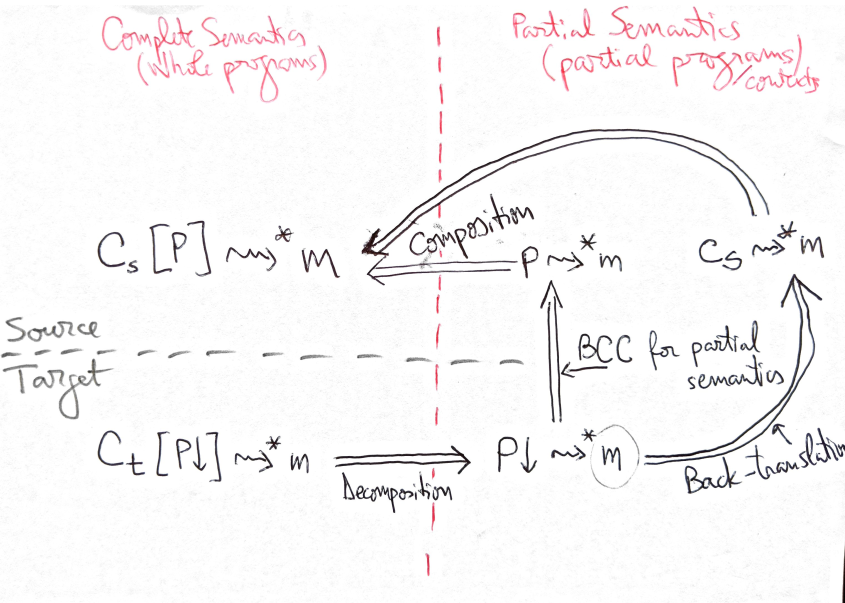 Complete Semantics
(Whole programs)
Partial Semantics
(partial programs)
/contexts
Composition
Cₛ [P] ⇝* m
P ⇝* m
Cₛ ⇝* m
Source
Target
BCC for partial
semantics
Cₜ [P↓] ⇝* m
P↓ ⇝* m
Decomposition
Back-translation